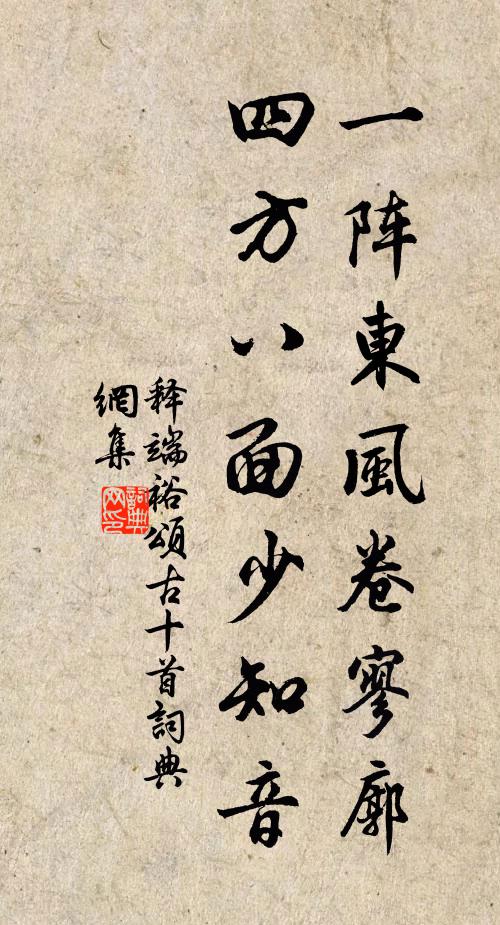 一阵東風卷寥廓
四方八面少知音
释端裕頌古十首詞典
網集
詞典
网印